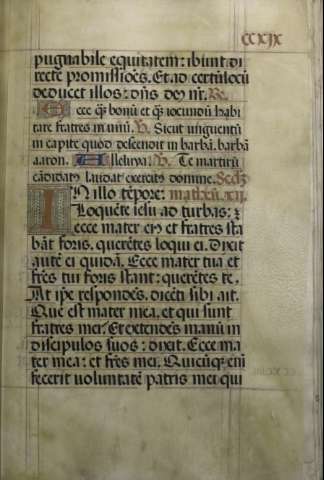 ccxix
pugnabile equitatem: ibunt di
recte promissiões. Et ad certũ locũ
deducet illos: dñs deꝰ nr̃. Re.
Ecce q̃ bonũ et q̃ iocundũ habi
tare fratres in unũ. V. Sicut ungentũ
in capite quod descendit in barbã. barbã
aaron. Alleluya. V. Te martirũ
cãdidatꝰ laudat exercitꝰ domine. Secd̃z
IN illo tẽpore: matheũ. xij.
Loquẽte iesu ad turbas: ⁊
ecce mater eiꝰ et fratres sta
bãt foris. querẽtes loqui ei. Dixit
autẽ ei quidã. Ecce mater tua et
fr̃es tui foris stant: querẽtes te.
At ip̃e respondẽs. dicẽti sibi ait.
Que est mater mea. et qui sunt
fratres mei? Et extendẽs manũ in
discipulos suos: dixit. Ecce ma
ter mea: et fr̃es mei. Quicũq̃ eni
fecerit voluntatẽ patris mei qui